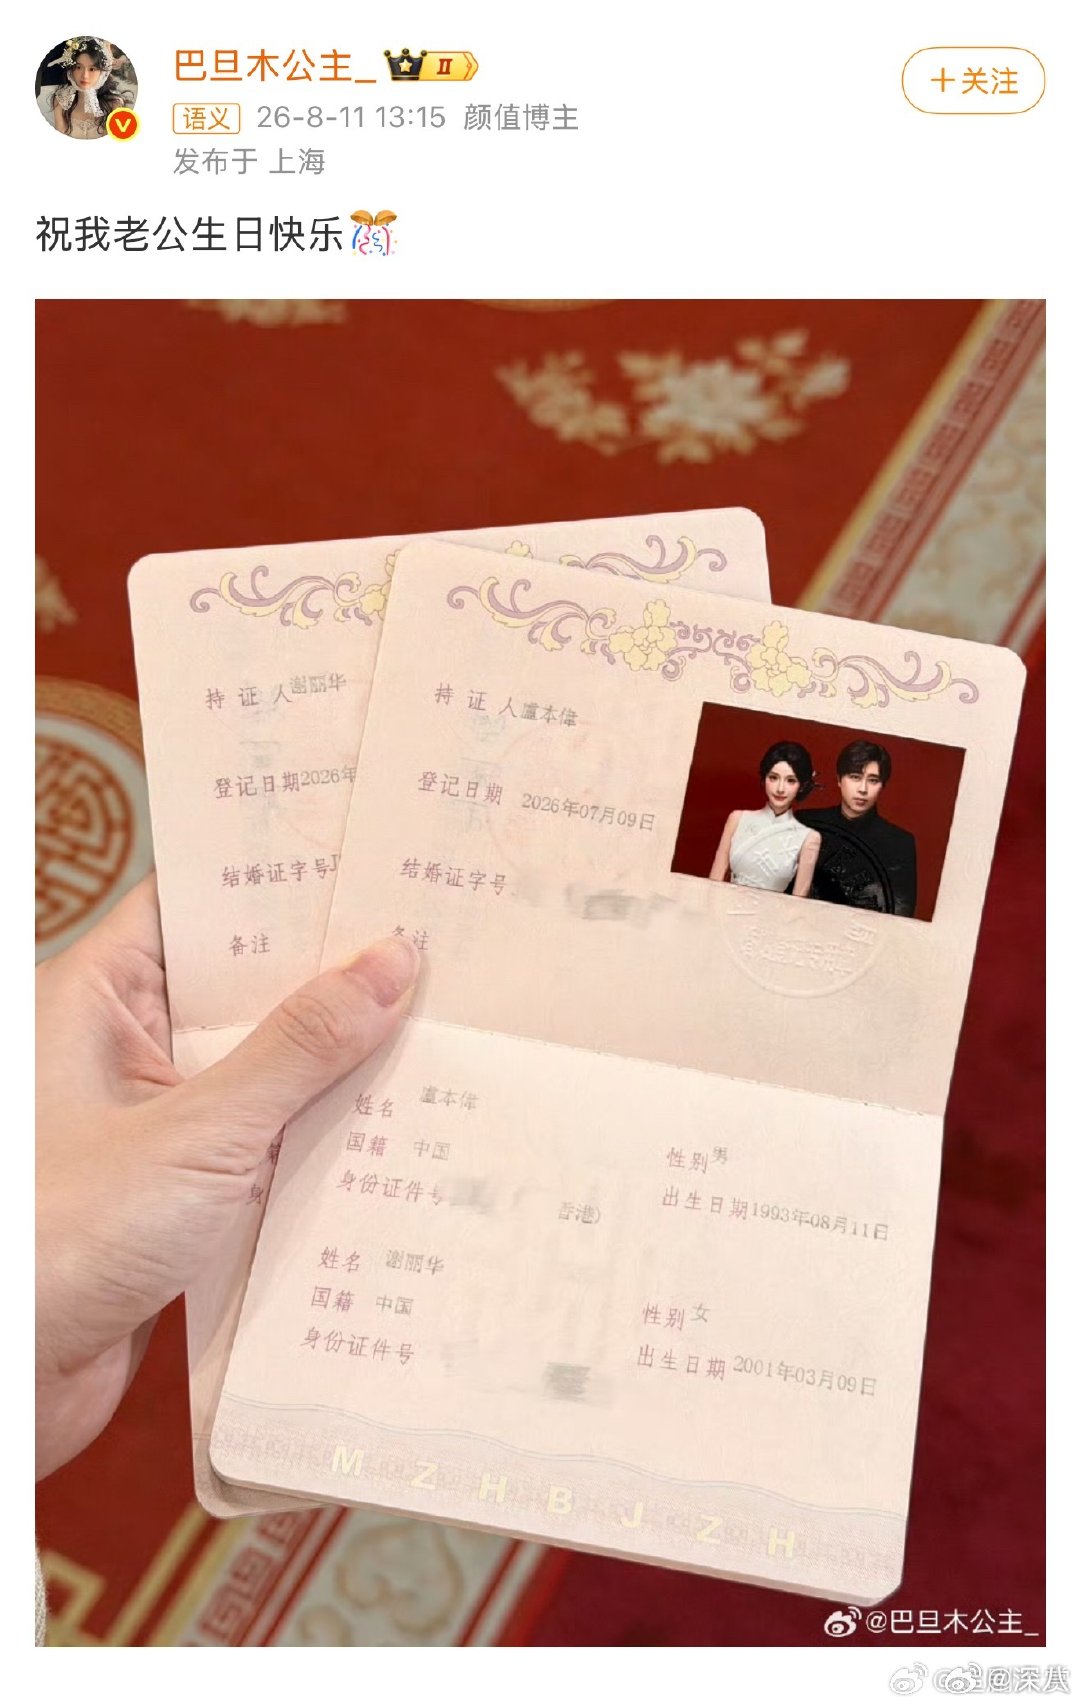 巴旦木公主_
II
+关注
语义 26-8-11 13:15 颜值博主
发布于 上海
祝我老公生日快乐
持证人谢丽华
登记日期2026年
结婚证字号J
备注
持证人盧本偉
登记日期 2026年07月09日
结婚证字号
备注
姓名 盧本偉
国籍 中国
性别男
身份证件号
香港)
出生日期1993年08月11日
姓名 谢丽华
国籍 中国
性别女
身份证件号
出生日期2001年03月09日
籍
身
MZHBJZH
@巴旦木公主_
@深蒉